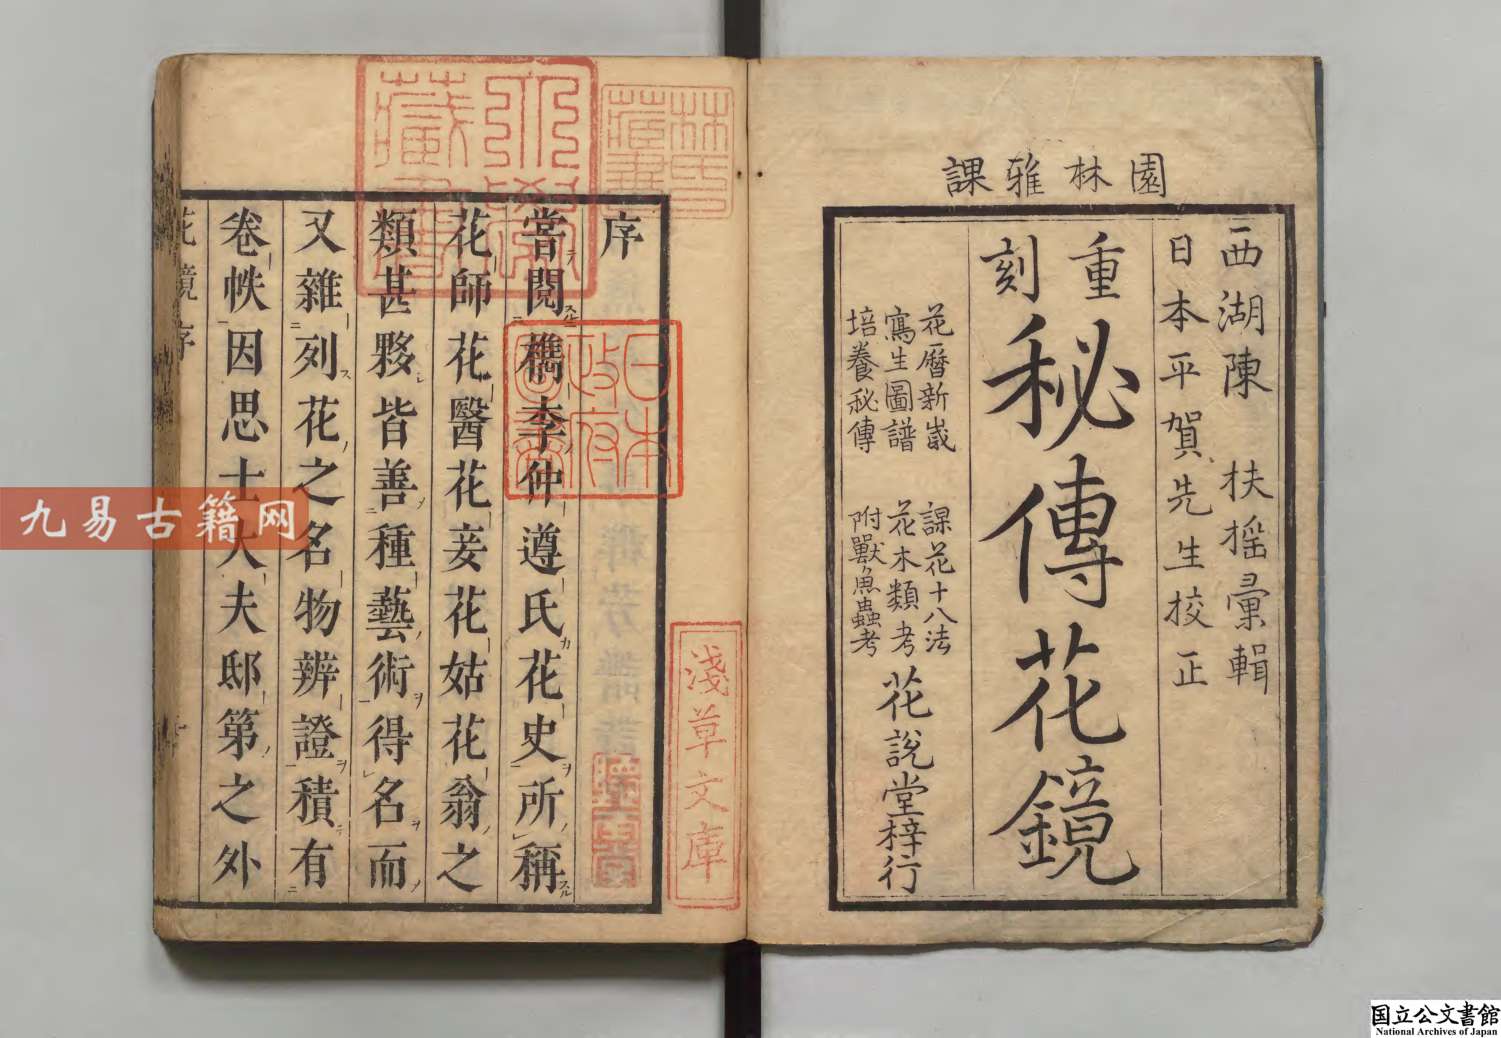 園林雅課
西湖陳 扶搖彙輯
日本平賀先生校正
重刻
秘傳花鏡
花曆新裁 課花十八法
寫生圖譜 花木類考
培養秘傳 附獸魚蟲考
花說堂梓行
序
嘗閱檇李仲遵氏花史所稱
花師花醫花妾花姑花翁之
類甚夥皆善種藝術得名而
又雜列花之名物辨證積有
卷帙因思士大夫邸第之外
花鏡序
一
林氏藏書
淺草文庫
日本政府圖書
九易古籍网
国立公文書館
National Archives of Japan